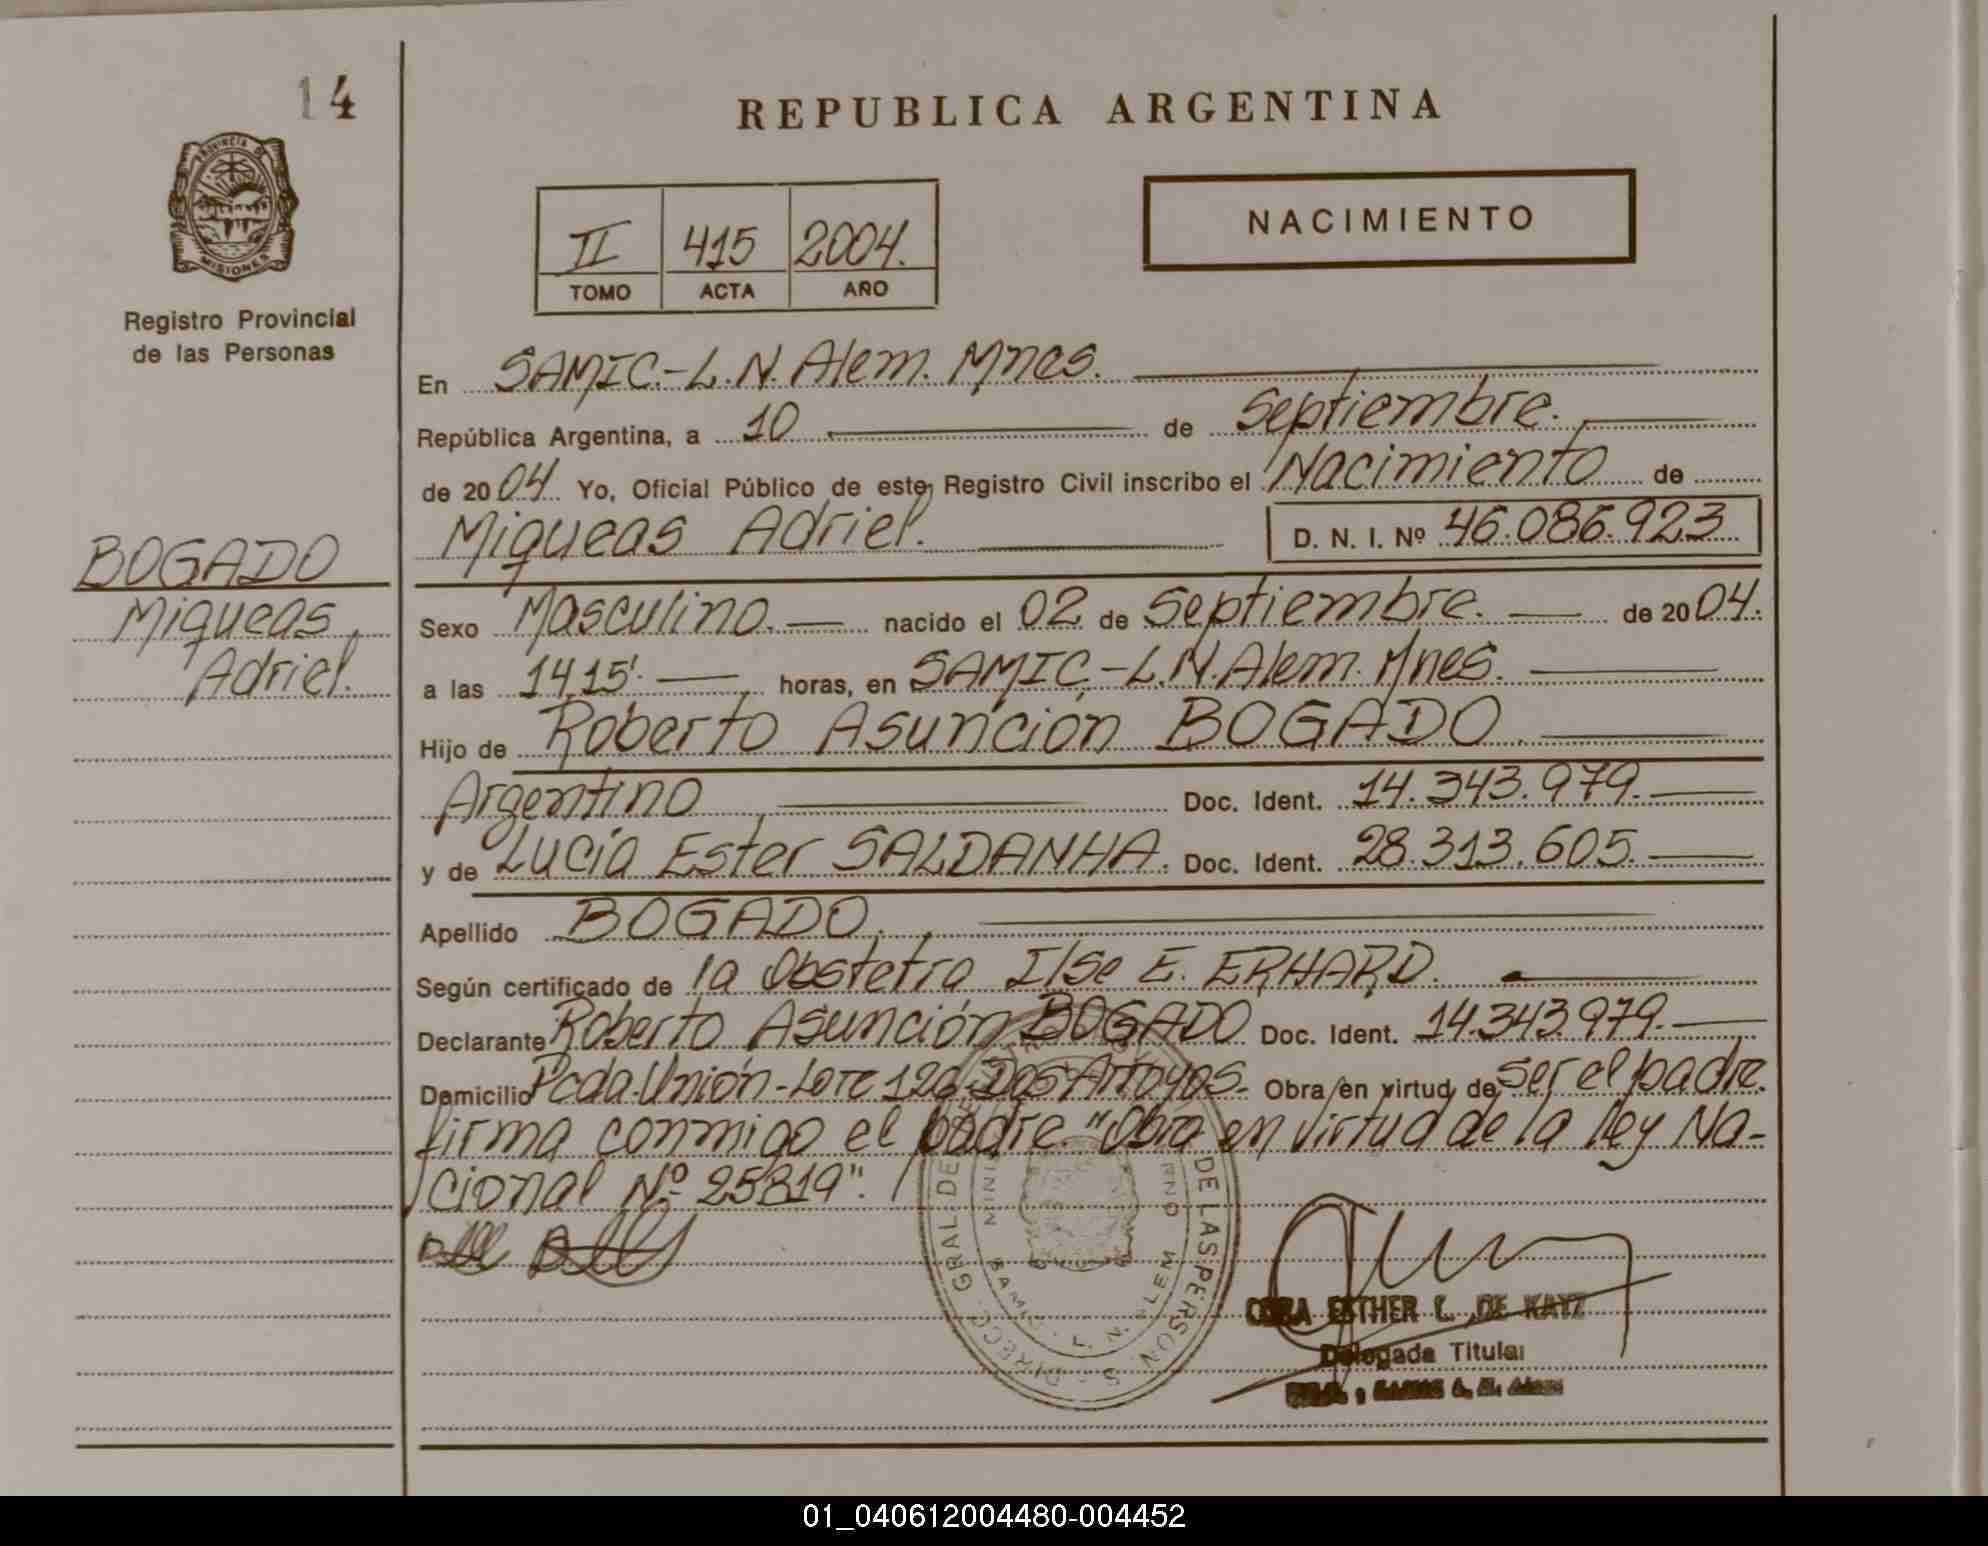 14
REPUBLICA ARGENTINA
PROVINCIA DE
MISIONES
NACIMIENTO
II 415 2004.
TOMO ACTA AÑO
Registro Provincial
de las Personas
En SAMIC.-L.N. Alem. Mnes.
República Argentina, a 10 de Septiembre.
de 2004 Yo, Oficial Público de este Registro Civil inscribo el Nacimiento de
Miqueas Adriel. D. N. I. Nº 46.086.923
BOGADO
Miqueas
Adriel.
Sexo Masculino. nacido el 02 de Septiembre. de 2004.
a las 14,15'. horas, en SAMIC.-L.N. Alem. Mnes.
Hijo de Roberto Asunción BOGADO
Argentino Doc. Ident. 14.343.979.
y de Lucía Ester SALDANHA. Doc. Ident. 28.313.605.
Apellido BOGADO.
Según certificado de la Obstetra Ilse E. ERHARD.
Declarante Roberto Asunción BOGADO Doc. Ident. 14.343.979.
Domicilio Pcda. Unión-Lote 126, Dos Arroyos. Obra en virtud de ser el padre.
firma conmigo el padre. "Obra en virtud de la Ley Na-
cional Nº 25819".
DIRECC. GRAL. DE DE LAS PERSON S
L. N. ALEM
ESTHER L. DE KATZ
Delegada Titular
01_040612004480-004452